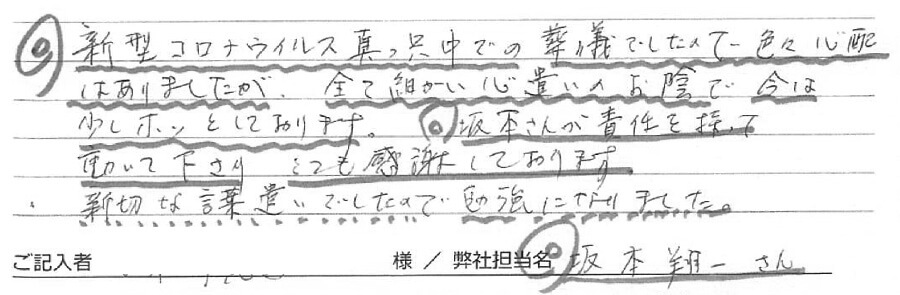 新型コロナウイルス真っ只中での葬儀でしたので色々心配
はありましたが、全て細かい心遣いのお陰で今は
少しホッとしております。坂本さんが責任を持って
動いて下さりとても感謝しております。
新切な言葉遣いでしたので勉強になりました。
ご記入者 様 / 弊社担当名 坂本翔一さん